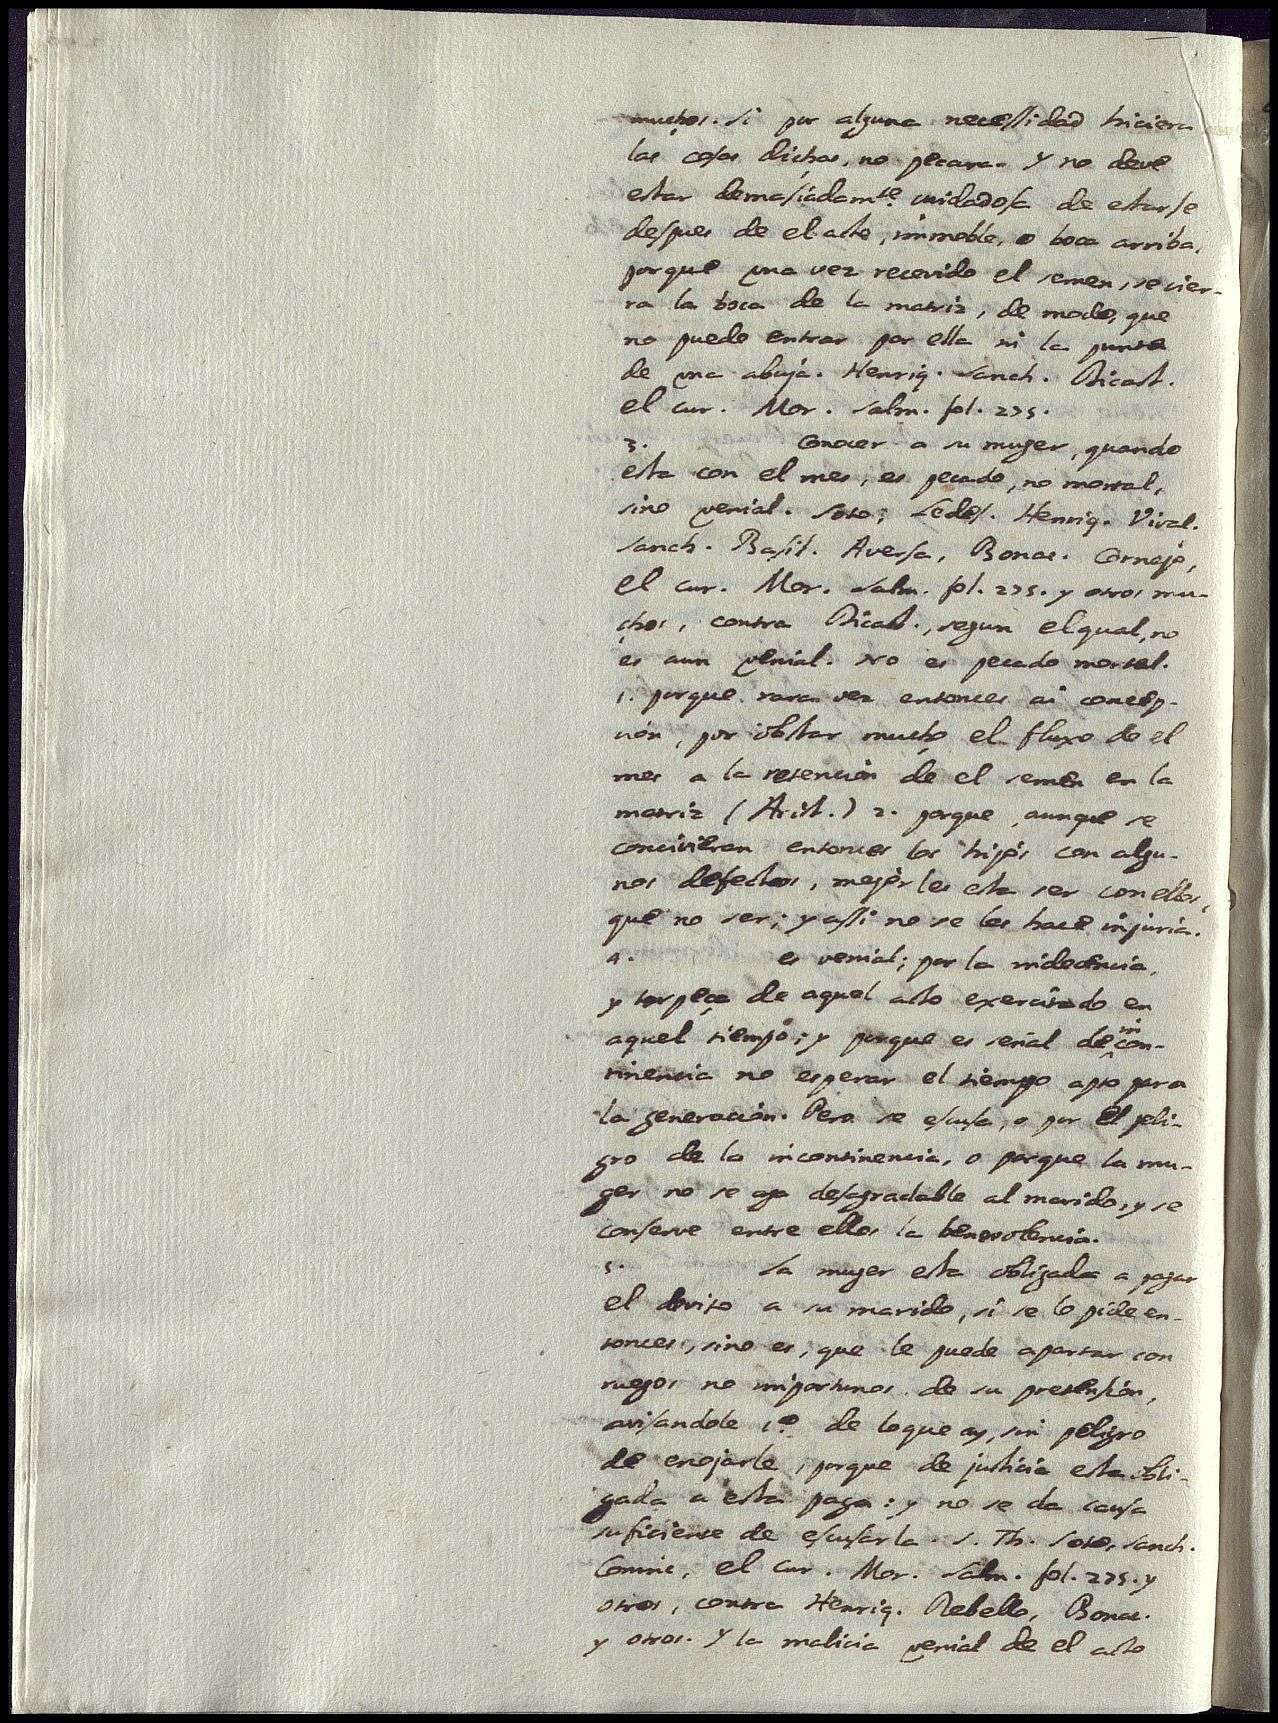 muchos. Si por alguna necessidad hiciera
las cosas dichas, no pecara. Y no deve
estar demasiadamte. cuidadosa de estarse
despues de el acto, immoble, o boca arriba,
porque una vez recevido el semen, se cier-
ra la boca de la matriz, de modo, que
no puede entrar por ella ni la punta
de una abuja. Henriq. Sanch. Dicast.
el cur. Mor. Salm. fol. 275.
3. Conocer a su muger, quando
esta con el mes, es pecado, no mortal,
sino venial. Soto, Ledes. Henriq. Vival.
Sanch. Basil. Aversa, Bonac. Cornejo,
el cur. Mor. Salm. fol. 275. y otros mu-
chos, contra Dicast., segun el qual, no
es aun venial. No es pecado mortal.
1. porque rara vez entonces ai concep-
ción, por obstar mucho el fluxo de el
mes a la retención de el semen en la
matriz (Arist.) 2. porque, aunque se
concivieran entonces los hijos con algu-
nos defectos, mejor les esta ser con ellos,
que no ser; y assi no se les hace injuria.
4. es venial; por la indecencia,
y torpeça de aquel acto exercitado en
aquel tiempo; y porque es señal de incon-
tinencia no esperar el tiempo apto para
la generación. Pero se escusa, o por el peli-
gro de la incontinencia, o porque la mu-
ger no se aga desagradable al marido, y se
conserve entre ellos la benevolencia.
5. La muger esta obligada a pagar
el devito a su marido, si se lo pide en-
tonces, sino es, que le puede apartar con
ruegos no importunos de su pretensión,
avisandole 1º. de lo que ay, sin peligro
de enojarle, porque de justicia esta obli-
gada a esta paga: y no se da causa
suficiente de escusarla. S. Th. Soto, Sanch.
Coninc, el cur. Mor. Salm. fol. 275. y
otros, contra Henriq. Rebello, Bonac.
y otros. Y la malicia venial de el acto